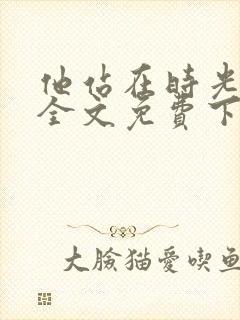 他站在時光
全文免費下
大臉猫愛喫魚